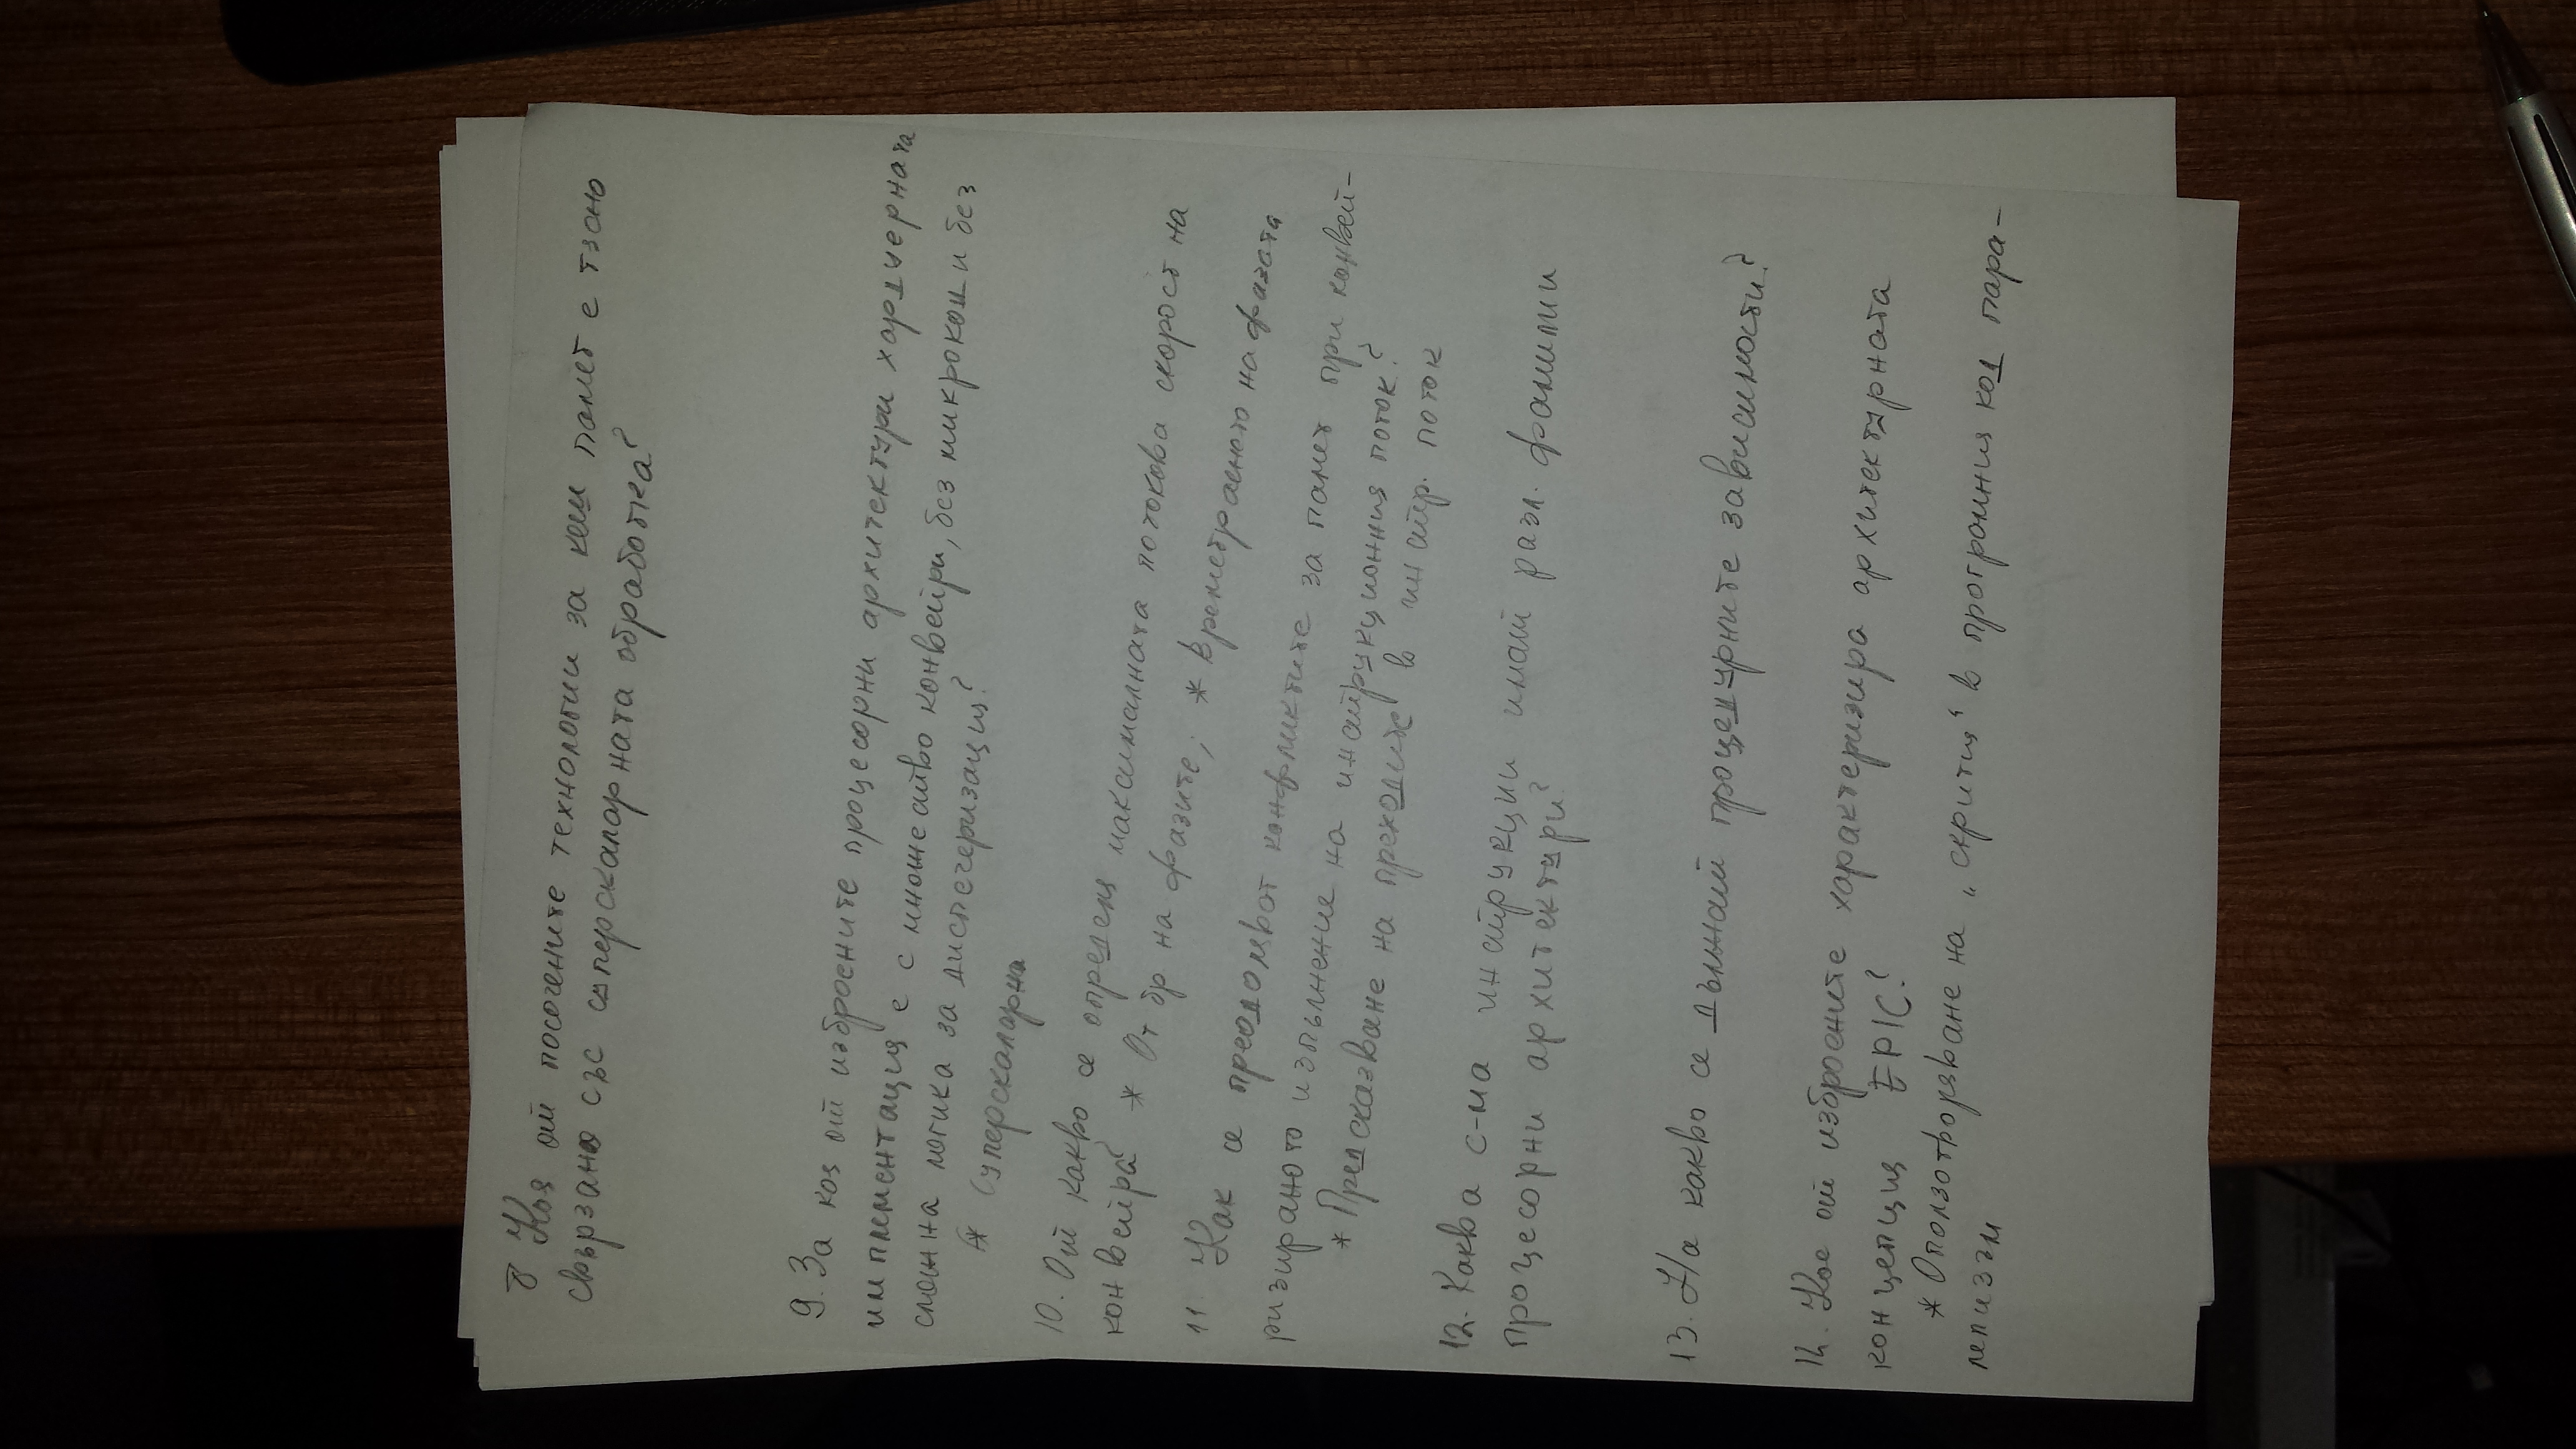 8 Коя от посочените технологии за кеш памет е тясно
свързано със суперскаларната обработка?
9. За коя от изброените процесорни архитектури хардуерната
имплементация е с множество конвейри, без микрокод и без
сложна логика за диспечеризация?
* Суперскаларна
10. От какво се определя максималната потокова скорост на
конвейра? * От бр на фазите; * времетраенето на фазата
11. Как се преодоляват конфликтите за памет при конвей-
ризираното изпълнение на инструкционния поток?
* Предсказване на преходите в инстр. поток
12. Каква с-ма инструкции имат разл. фамилии
процесорни архитектури?
13. На какво се дължат процедурните зависимости?
14. Кое от изброените характеризира архитектурната
концепция EPIC?
* Оползотворяване на „скрития“ в програмния код пара-
лелизъм